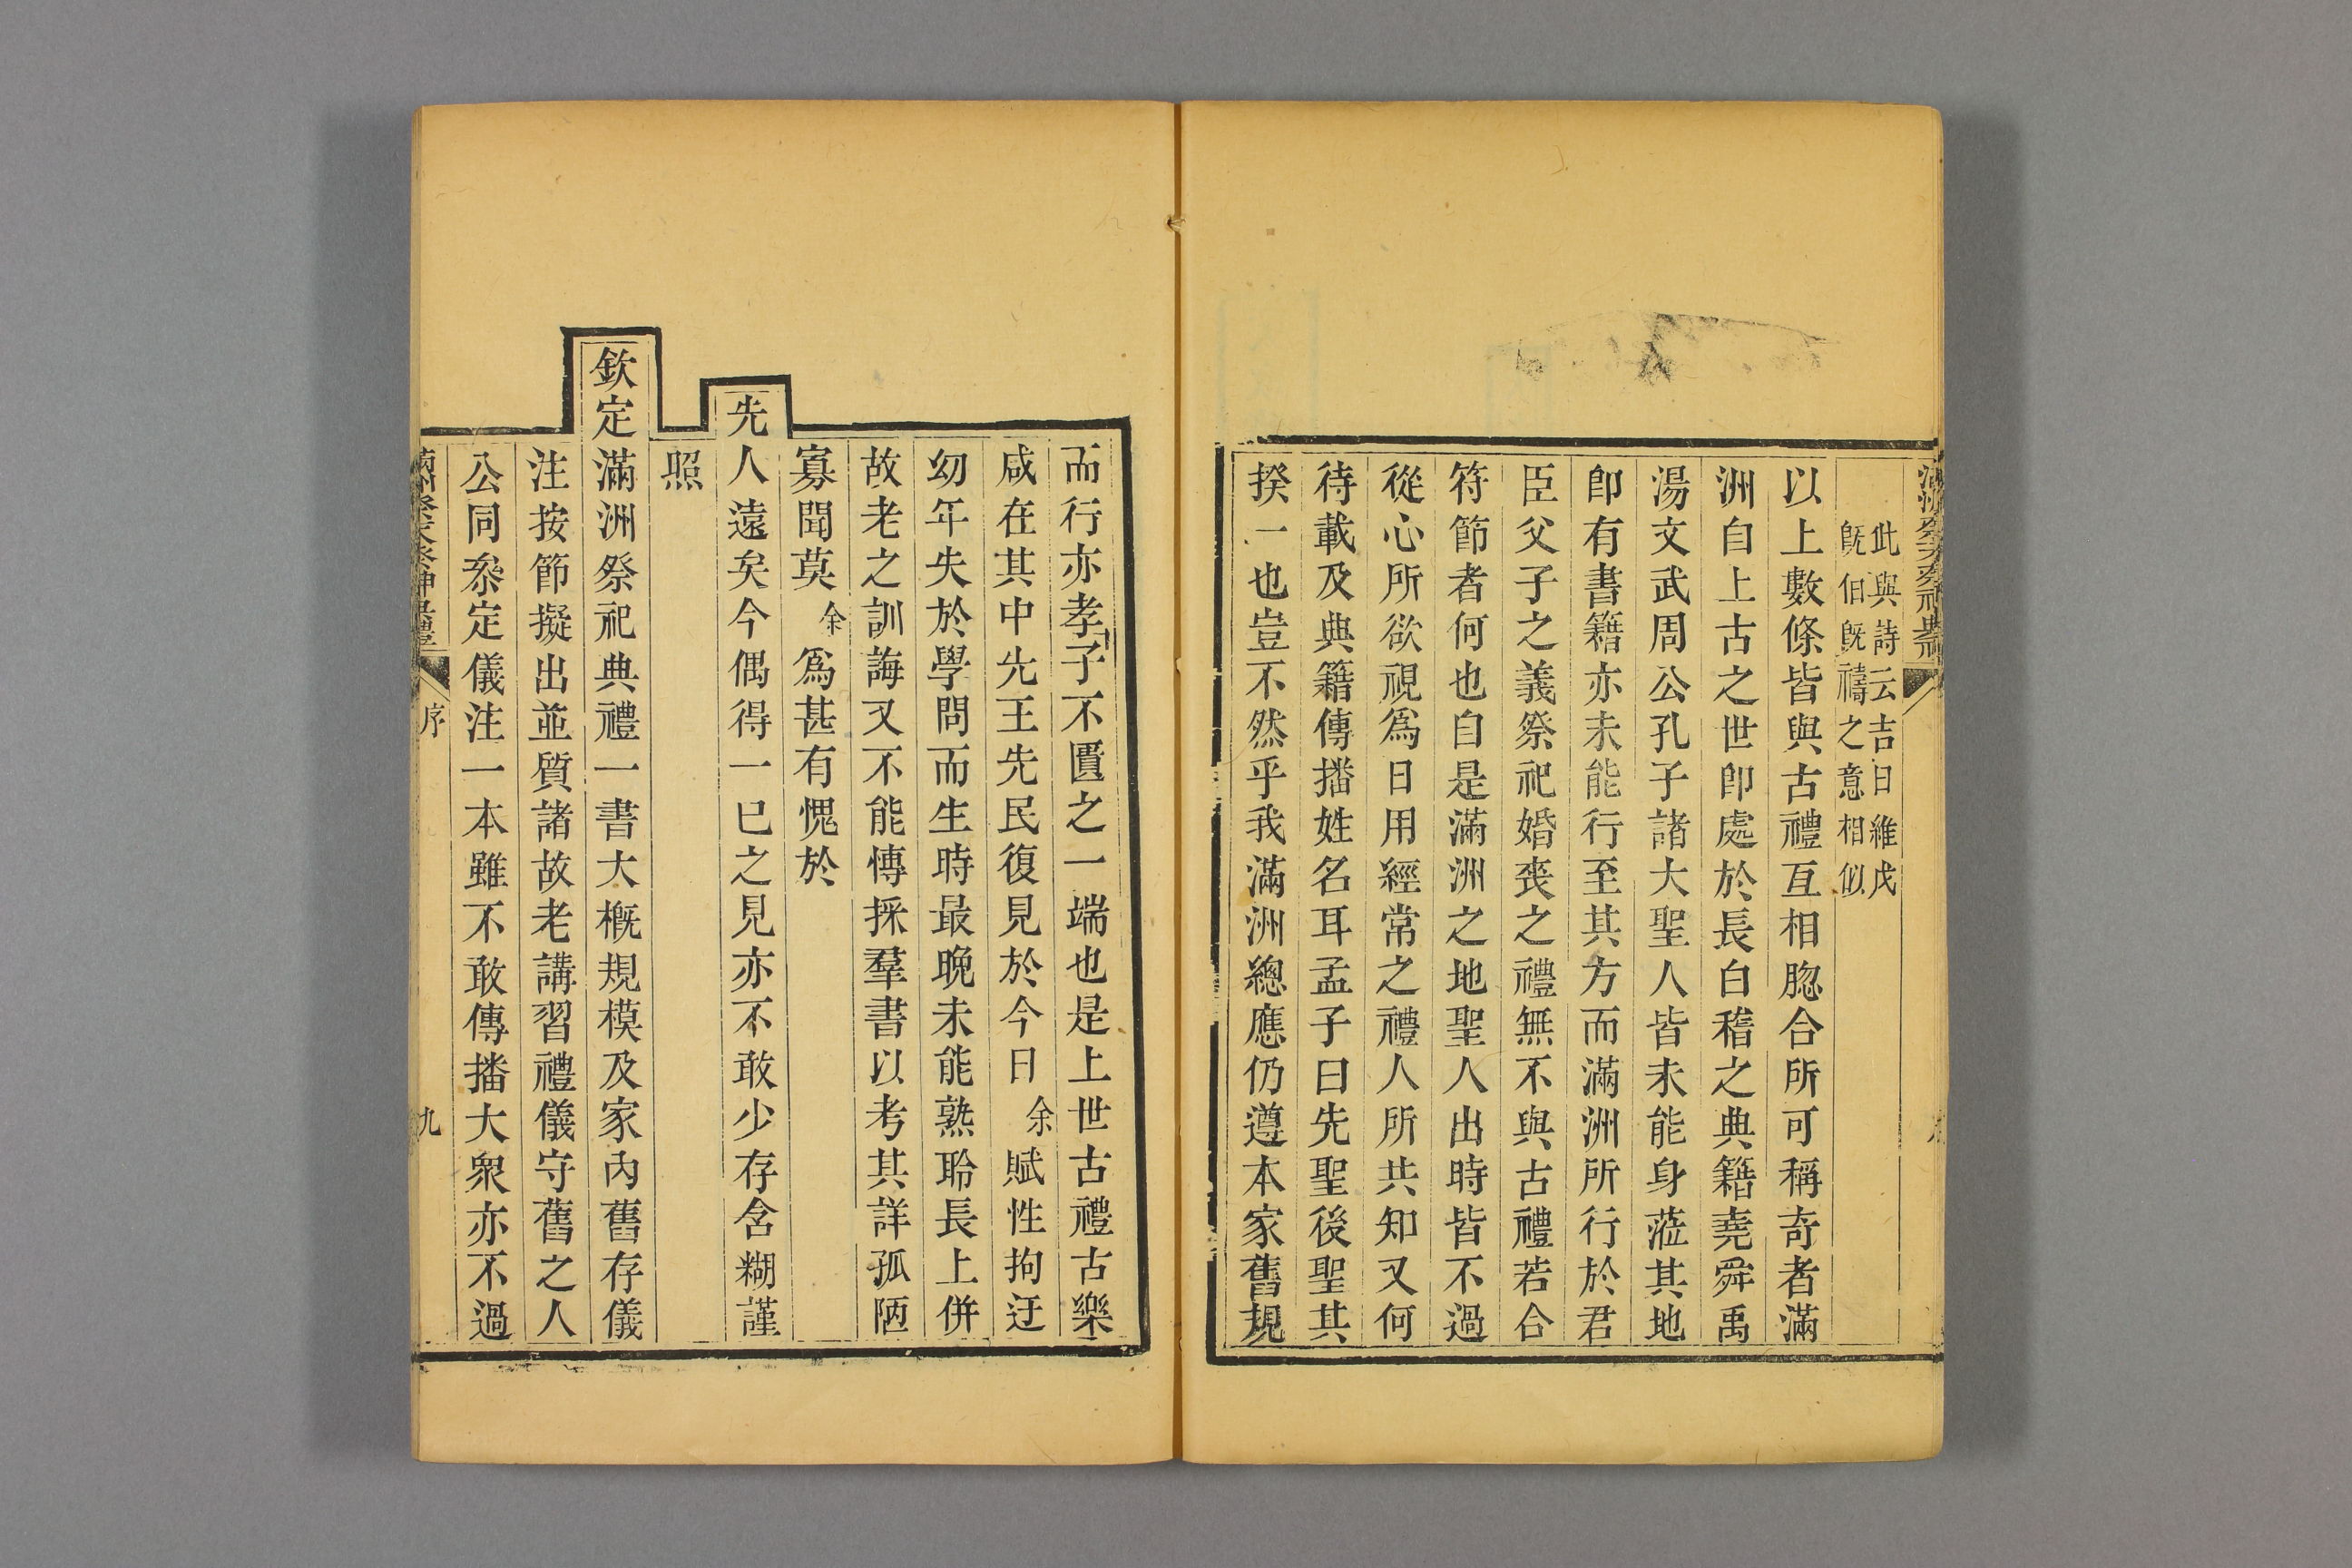 此與詩云吉日維戊
旣伯旣禱之意相似
以上數條皆與古禮互相脗合所可稱奇者滿
洲自上古之世卽處於長白稽之典籍堯舜禹
湯文武周公孔子諸大聖人皆未能身蒞其地
卽有書籍亦未能行至其方而滿洲所行於君
臣父子之義祭祀婚喪之禮無不與古禮若合
符節者何也自是滿洲之地聖人出時皆不過
從心所欲視爲日用經常之禮人所共知又何
待載及典籍傳播姓名耳孟子曰先聖後聖其
揆一也豈不然乎我滿洲總應仍遵本家舊規
而行亦孝子不匱之一端也是上世古禮古樂
咸在其中先王先民復見於今日余賦性拘迂
幼年失於學問而生時最晚未能熟聆長上併
故老之訓誨又不能博採羣書以考其詳孤陋
寡聞莫余爲甚有愧於
先人遠矣今偶得一已之見亦不敢少存含糊謹
照
欽定滿洲祭祀典禮一書大槪規模及家內舊存儀
注按節擬出並質諸故老講習禮儀守舊之人
公同叅定儀注一本雖不敢傳播大衆亦不過
滿洲祭天祭神典禮
序
九